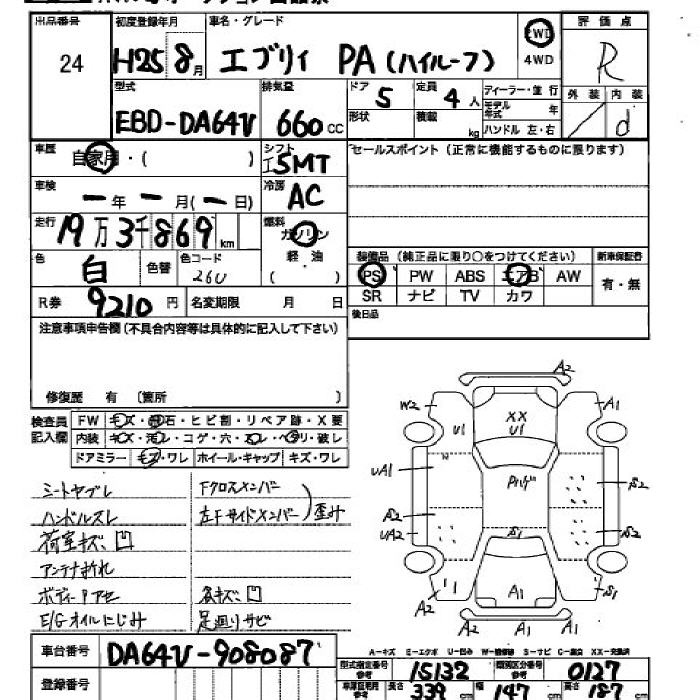 出品番号
24
初度登録年月
H25 8月
車名・グレード
エブリイ PA (ハイルーフ)
2WD
4WD
評価点
R
外装 内装
d
型式
EBD-DA64V
排気量
660 CC
ドア 5
定員 4 人
ディーラー・並行
モデル年式 年
形状
積載 kg
ハンドル 左・右
車歴
自家用・( )
シフト
I5MT
セールスポイント(正常に機能するものに限ります)
車検
ー年ー月(ー日)
冷房
AC
走行
19万3千869km
燃料
ガソリン
軽油
( )
色
白
色替
色コード
26U
装備品 (純正品に限り〇をつけてください)
新車保証書
PS PW ABS エアB AW
有・無
SR ナビ TV カワ
R券 9210円
名変期限 月 日
後日品
注意事項申告欄(不具合内容等は具体的に記入して下さい)
修復歴 有 〔箇所 〕
検査員記入欄
FW キズ・飛石・ヒビ割・リペア跡・X要
内装 キズ・汚レ・コゲ・穴・スレ・ヘタリ・破レ
ドアミラー キズ・ワレ ホイール・キャップ キズ・ワレ
シートヤブレ
ハンドルスレ
荷室キズ凹
アンテナ折れ
ボディー下アセ
E/Gオイルにじみ
Fクロスメンバー
左Fサイドメンバー
歪み
各キズ凹
足廻りサビ
A2
W2
A1
XX
U1
U1
W
UA1
Pハゲ
S2
S2
UA2
S1
A2
A2
A1
S1
A2
A1
A2
A-キズ E-エクボ U-凹み W-補修跡 S-サビ C-腐食 XX-交換済
車台番号
DA64V-908087
登録番号
型式指定番号 参考
15132
類別区分番号 参考
0127
車庫証明用 参考
長さ 339 cm
幅 147 cm
高さ 187 cm